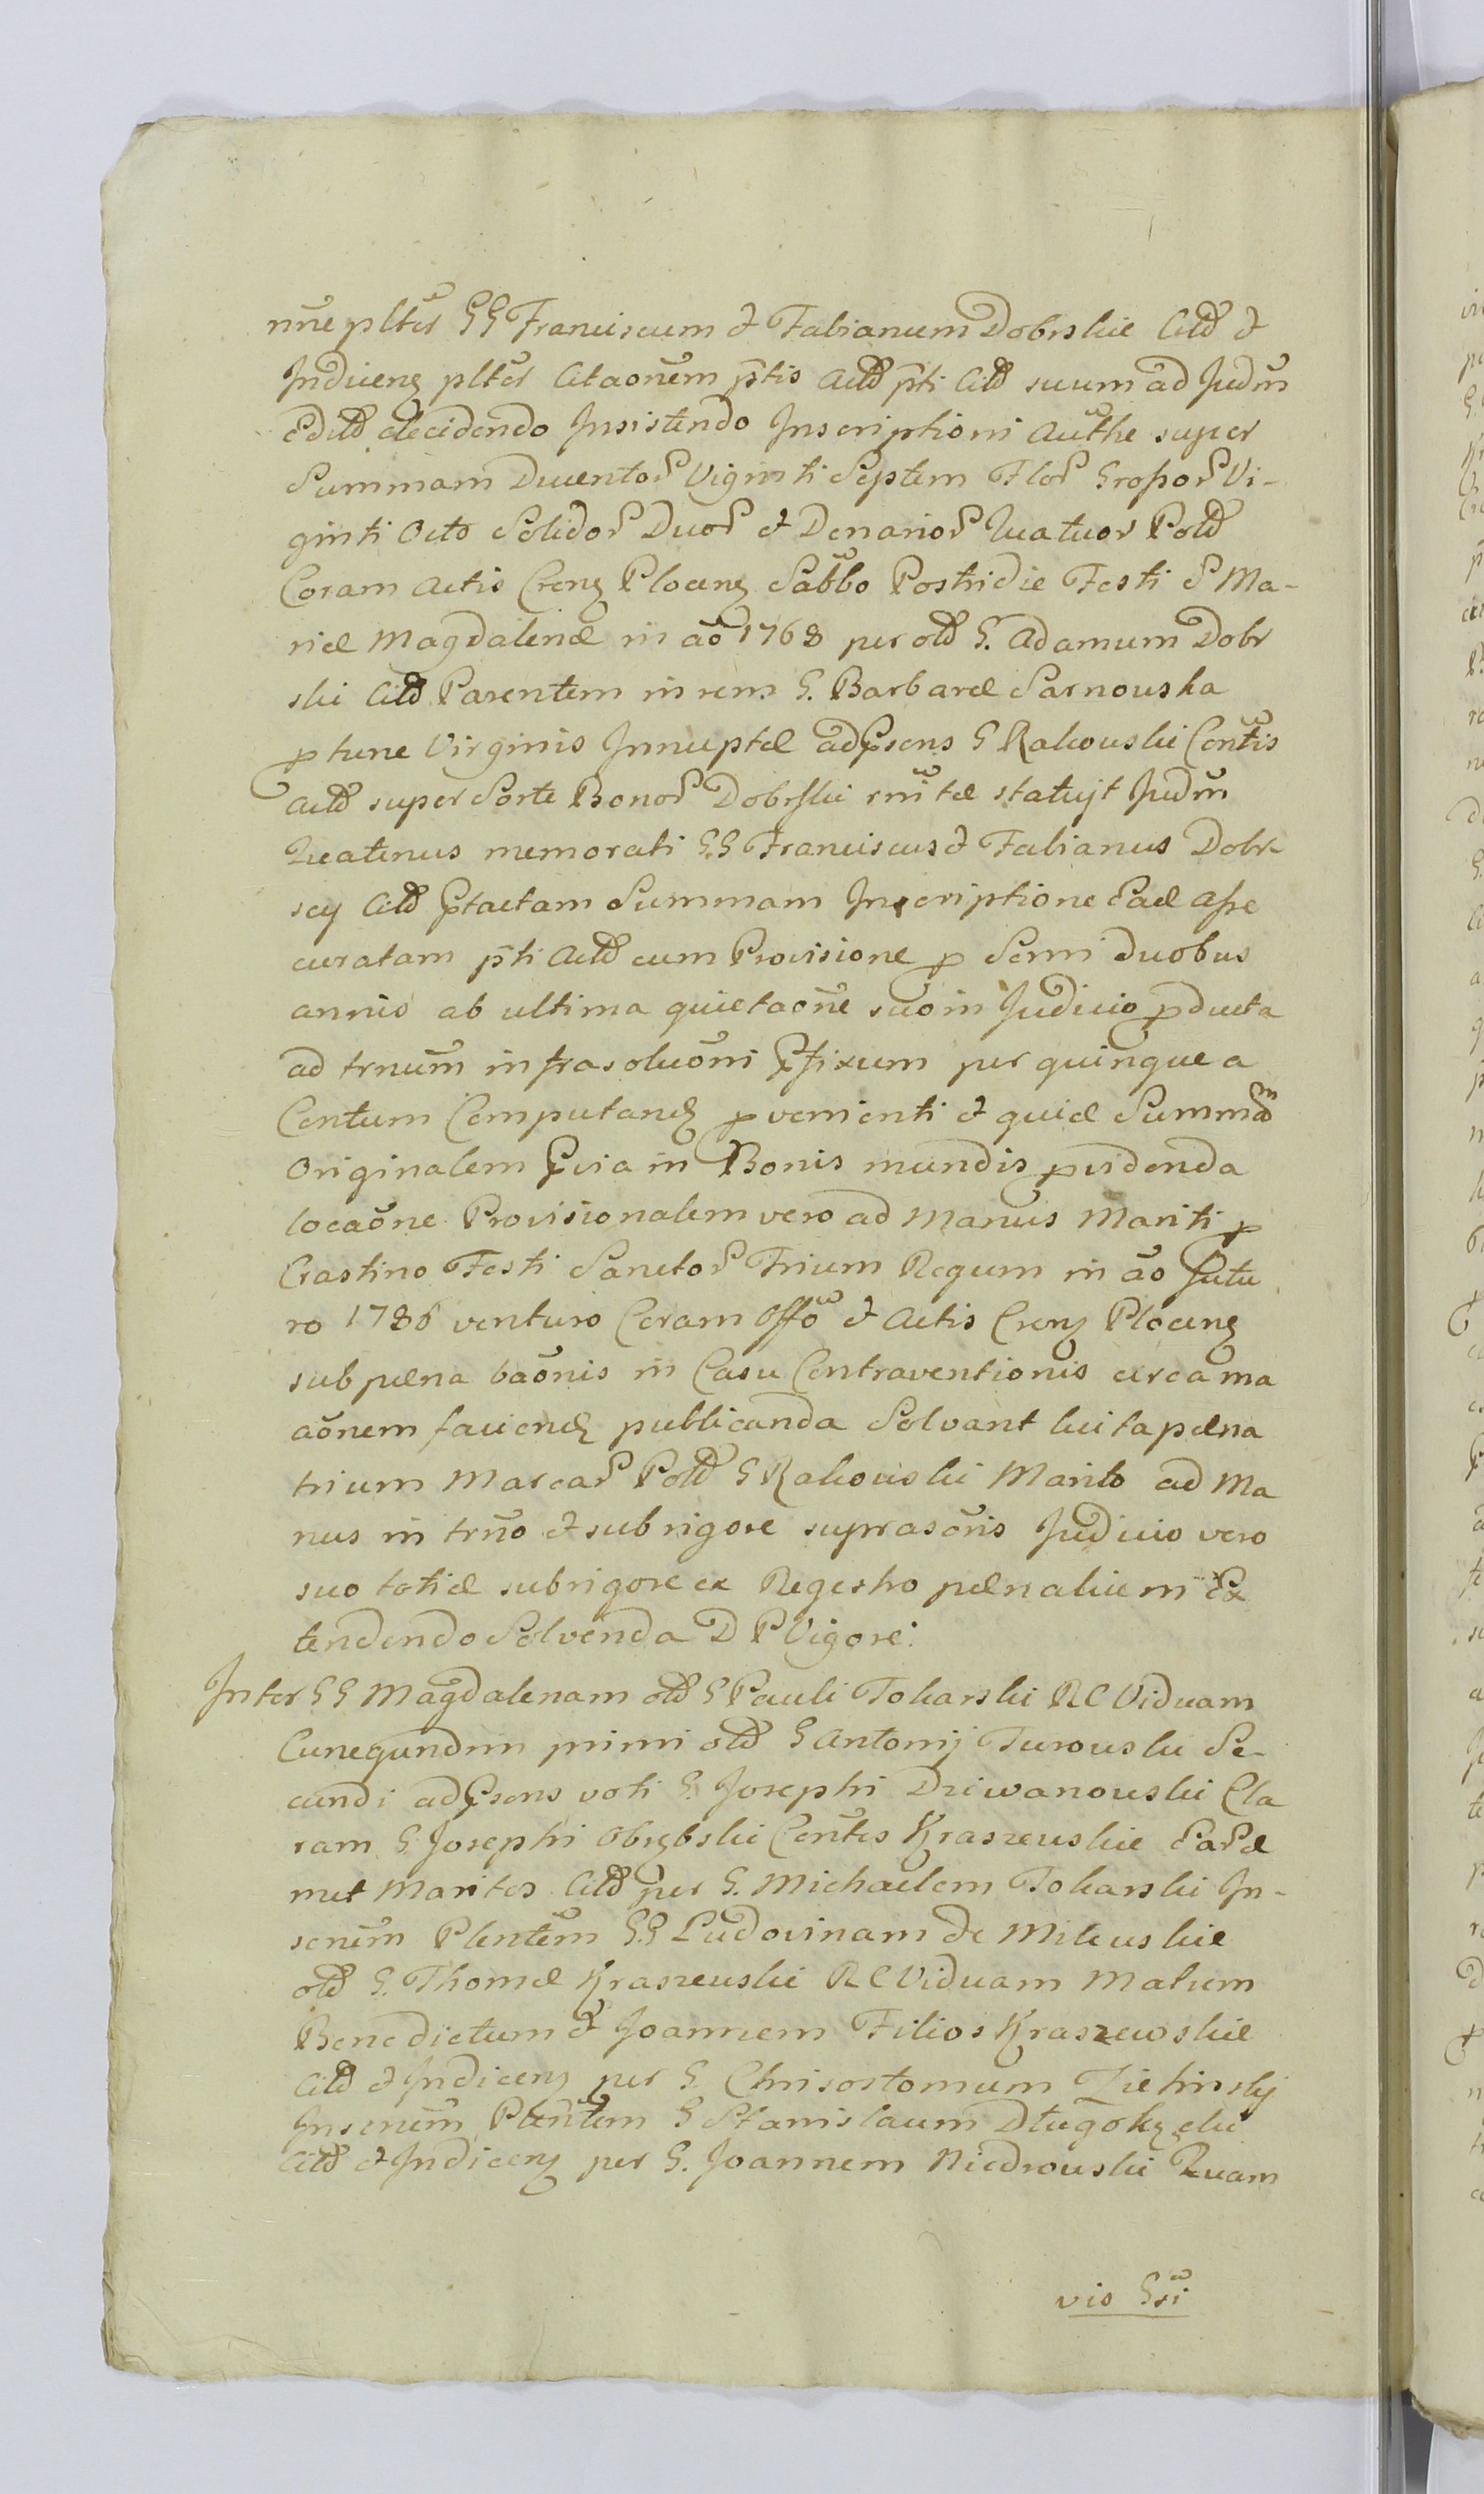 nne plter GG Franciscum & Fabianum Dobrskie Citd &
Indiceng plter Citaonem ptis Actd pti Citd suum ad Judm
Editd decidendo Insistendo Inscriptioni Authe super
Summam Ducentor Viginti Septem Flor Grossor Vi-
ginti Octo Solidor Duor & Denarior Quatuor Pold
Coram Actis Crens Plocens Sabbo Postridie Festi S Ma-
riæ Magdalenæ in ao 1768 per old G. Adamum Dobr
ski Citd Parentem in rem G. Barbaræ Sarnowska
p tunc Virginis Innuptæ ad Psens G Rakowski Contis
Actd super Sorte Bonor Dobrski rmtæ statujt Judm
Quatenus memorati GG Franciscus & Fabianus Dobr-
scy Citd Ptactam Summam Inscriptione Eadæ asse
curatam pti Actd cum Provisione p Semi duobus
annis ab ultima quietaone suo in Judicio pducta
ad trnum infrasoluoni Pfixum per quinque a
Centum Computand pvenienti & quidæ Summam
Originalem Pvia in Bonis mundis pvidenda
locaone Provisionalem vero ad Manus Mariti p
Crastino Festi Sanctor Trium Regum in ao futu
ro 1786 venturo Coram Offo & Actis Crens Plocens
sub pæna baonis in Casu Contraventionis circa ma
aonem faciend publicanda Solvant luita pæna
trium Marcar Pold G Rakowski Marito ad Ma
nus in trno & sub rigore suprascris Judicio vero
suo totidæ sub rigore ex Regestro pænalium Ex
tendendo Solvenda D P Vigore.
Inter GG Magdalenam old G Pauli Tokarski R C Viduam
Cunegundim primi old G Antonij Turowski Se-
cundi ad Psens voti G. Josephi Dziwanowski Cla
ram G. Josephi Obrębski Contes Kraszewskie Eardæ
met Maritos Citd per G. Michaelem Tokarski In-
scrium Plentem GG Ludovinam de Milewskie
old G. Thomæ Kraszewski R C Viduam Matrem
Benedictum & Joannem Filios Kraszewskie
Citd & Indicens per G Chrisostomum Zielinskj
Inscrium Plentem G Stanislaum Długokęcki
Citd & Indicens per G. Joannem Niedrowski Quam
vis Gsi